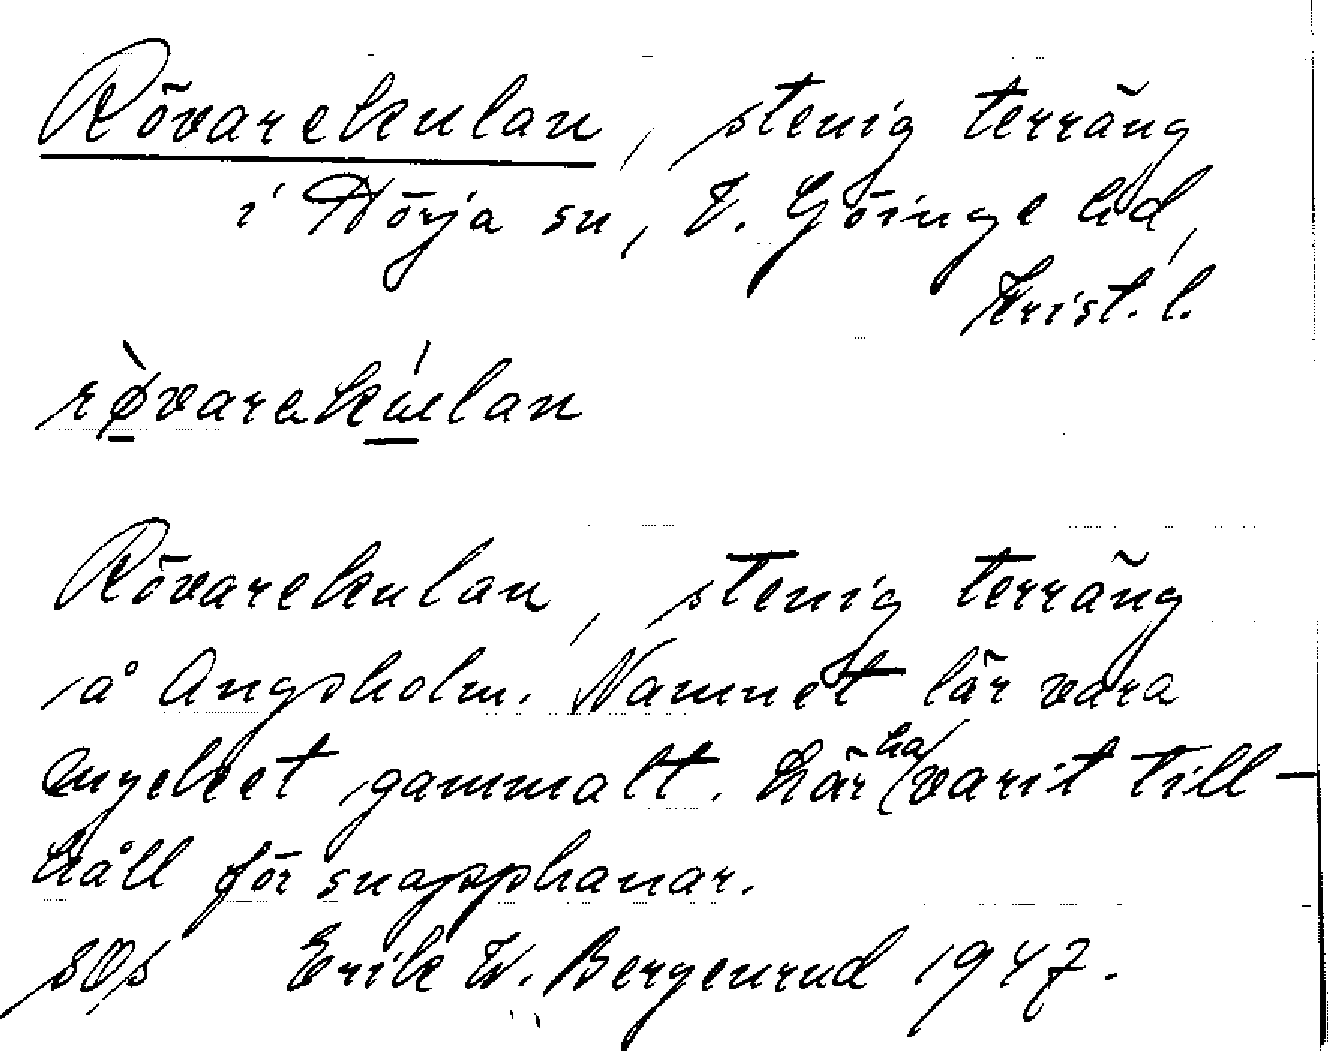 Rövarekulan, stenig terräng
i Hörja sn, V. Göinge hd,
Krist. l.
rø̀varekúlan
Rövarekulan, stenig terräng
å Ängsholm. Namnet lär vara
mycket gammalt. Lär ha varit till-
håll för snapphanar.
Erik W. Bergenrud 1947.